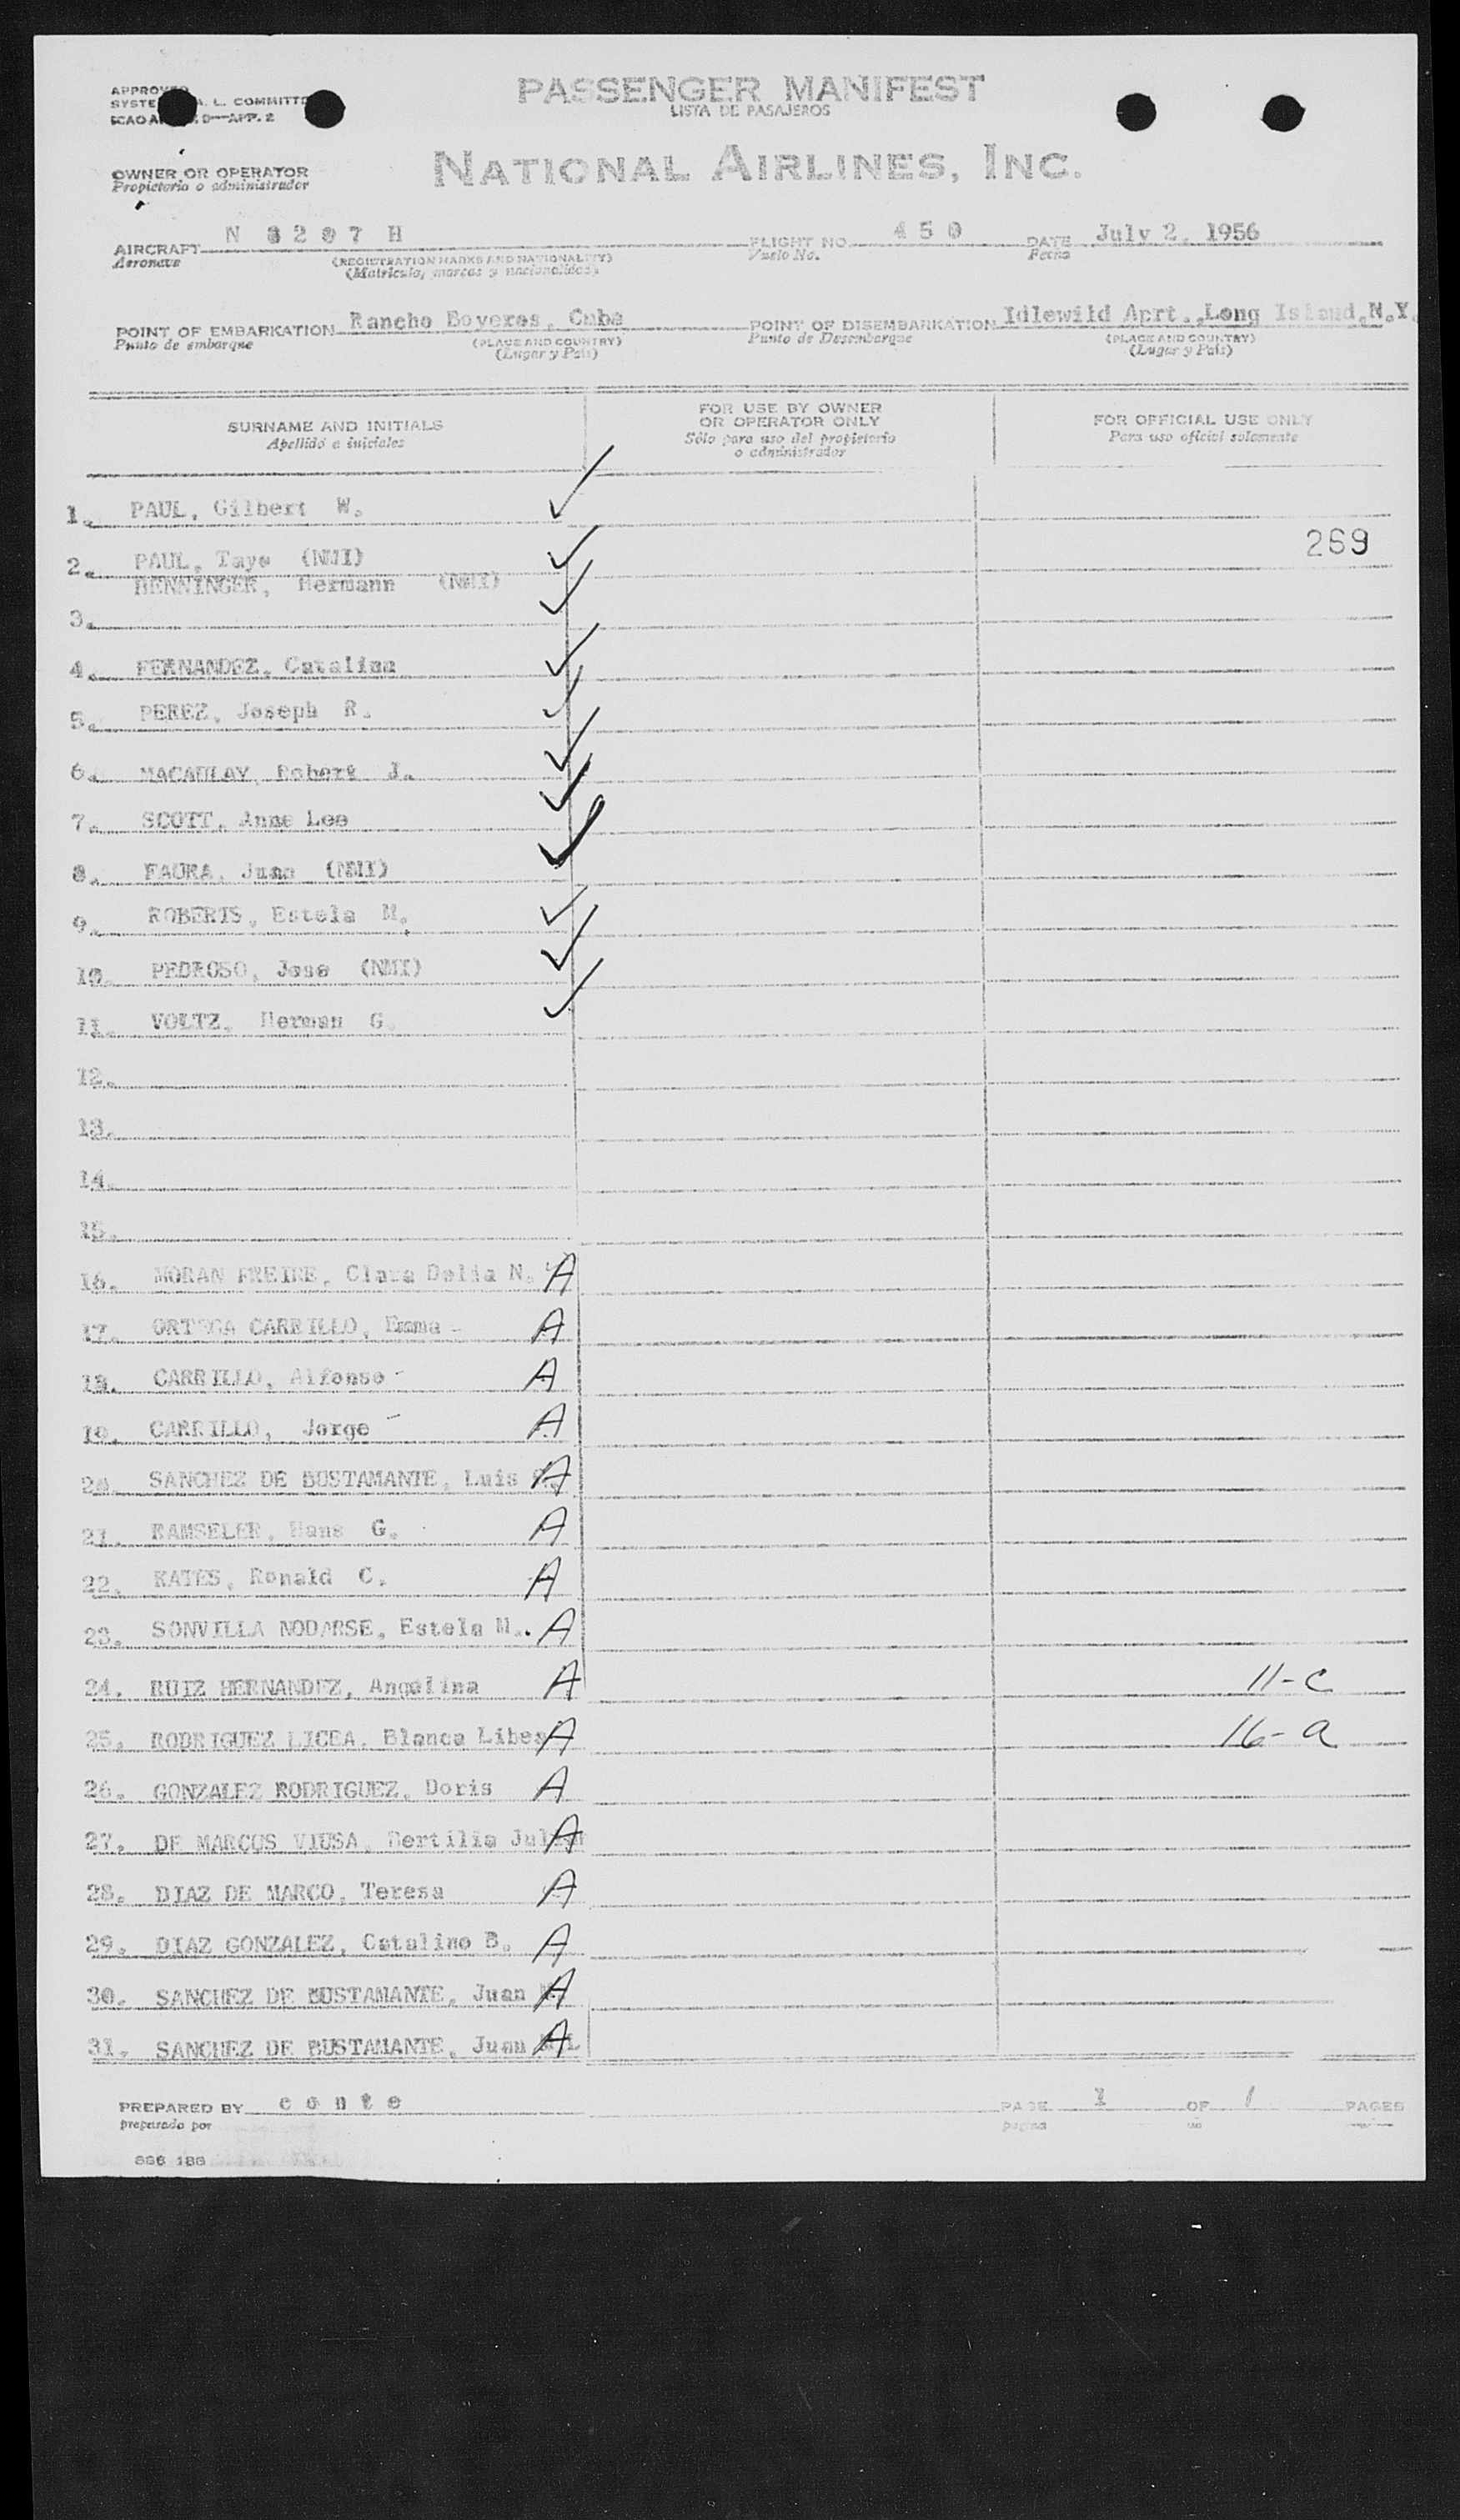 PASSENGER MANIFEST
LISTA DE PASAJEROS
APPROVED
L. COMMITTE
APP. 2
NATIONAL AIRLINES, INC.
OWNER OR OPERATOR
Propietario o administrador
AIRCRAFT N 8207 H FLIGHT NO. 450 DATE July 2, 1956
Aeronave (REGISTRATION MARKS AND NATIONALITY) Vuelo No. Fecha
(Matricula, marcas y nacionalidad)
POINT OF EMBARKATION Rancho Boyeros, Cuba POINT OF DISEMBARKATION Idlewild Aprt., Long Island, N.Y.
Punto de embarque (PLACE AND COUNTRY) Punto de Desembarque (PLACE AND COUNTRY)
(Lugar y País) (Lugar y País)
SURNAME AND INITIALS FOR USE BY OWNER OR OPERATOR ONLY FOR OFFICIAL USE ONLY
Apellido e iniciales Sólo para uso del propietario o administrador Para uso oficial solamente
1. PAUL, Gilbert W. ✓
269
2. PAUL, Taye (NMI) ✓
HENNINGER, Hermann (NMI) ✓
3.
4. FERNANDEZ, Catalina ✓
5. PEREZ, Joseph R. ✓
6. MACAULAY, Robert J. ✓
7. SCOTT, Anne Lee ✓
8. FAURA, Juan (NMI) ✓
9. ROBERTS, Estela M. ✓
10. PEDROSO, Jose (NMI) ✓
11. VOLTZ, Herman G. ✓
12.
13.
14.
15.
16. MORAN FREIRE, Clara Delia N. A
17. ORTEGA CARRILLO, Emma - A
18. CARRILLO, Alfonso - A
19. CARRILLO, Jorge - A
20. SANCHEZ DE BUSTAMANTE, Luis A
21. RAMSELER, Hans G. A
22. KATES, Ronald C. A
23. SONVILLA NODARSE, Estela M. A
24. RUIZ HERNANDEZ, Angelina A 11-c
25. RODRIGUEZ LICEA, Blanca Libes A 16-a
26. GONZALEZ RODRIGUEZ, Doris A
27. DE MARCOS VIUSA, Hertilia A
28. DIAZ DE MARCO, Teresa A
29. DIAZ GONZALEZ, Catalino B. A
30. SANCHEZ DE BUSTAMANTE, Juan A
31. SANCHEZ DE BUSTAMANTE, Juan A
PREPARED BY conte PAGE 1 OF 1 PAGES
preparado por pagina